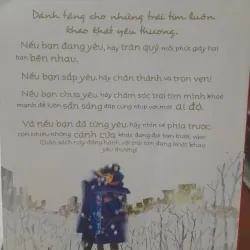 Dành tặng cho những trái tim luôn
khao khát yêu thương.
Nếu bạn đang yêu, hãy trân quý mỗi phút giây hai
bạn bên nhau.
Nếu bạn sắp yêu, hãy chân thành và trọn vẹn!
Nếu bạn chưa yêu, hãy chăm sóc trái tim mình khỏe
mạnh để luôn sẵn sàng đập cùng nhịp với một ai đó.
Và nếu bạn đã từng yêu, hãy nhìn về phía trước,
còn nhiều những cánh cửa khác đang đợi bạn bước vào!
(Cuốn sách này đồng hành với trái tim đang khát khao
yêu thương)